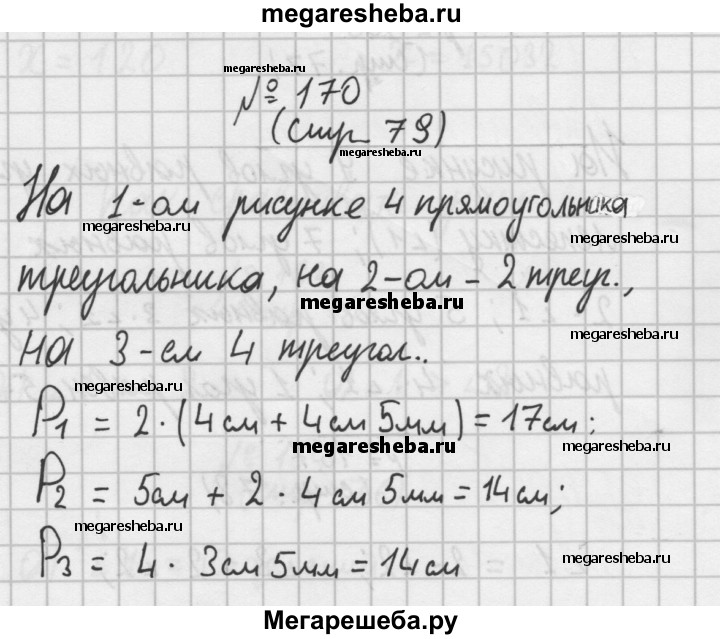 megaresheba.ru
megaresheba.ru
№ 170
(стр 79)
megaresheba.ru
На 1-ом рисунке 4 прямоугольника
megaresheba.ru
megaresheba.ru
треугольника, на 2-ом - 2 треуг.,
megaresheba.ru
megaresheba.ru
на 3-ем 4 треугол..
megaresheba.ru
P1 = 2·(4см + 4см 5мм) = 17см;
megaresheba.ru
megaresheba.ru
P2 = 5см + 2 · 4см 5мм = 14см;
megaresheba.ru
megaresheba.ru
P3 = 4 · 3см 5мм = 14см
Мегарешеба.ру